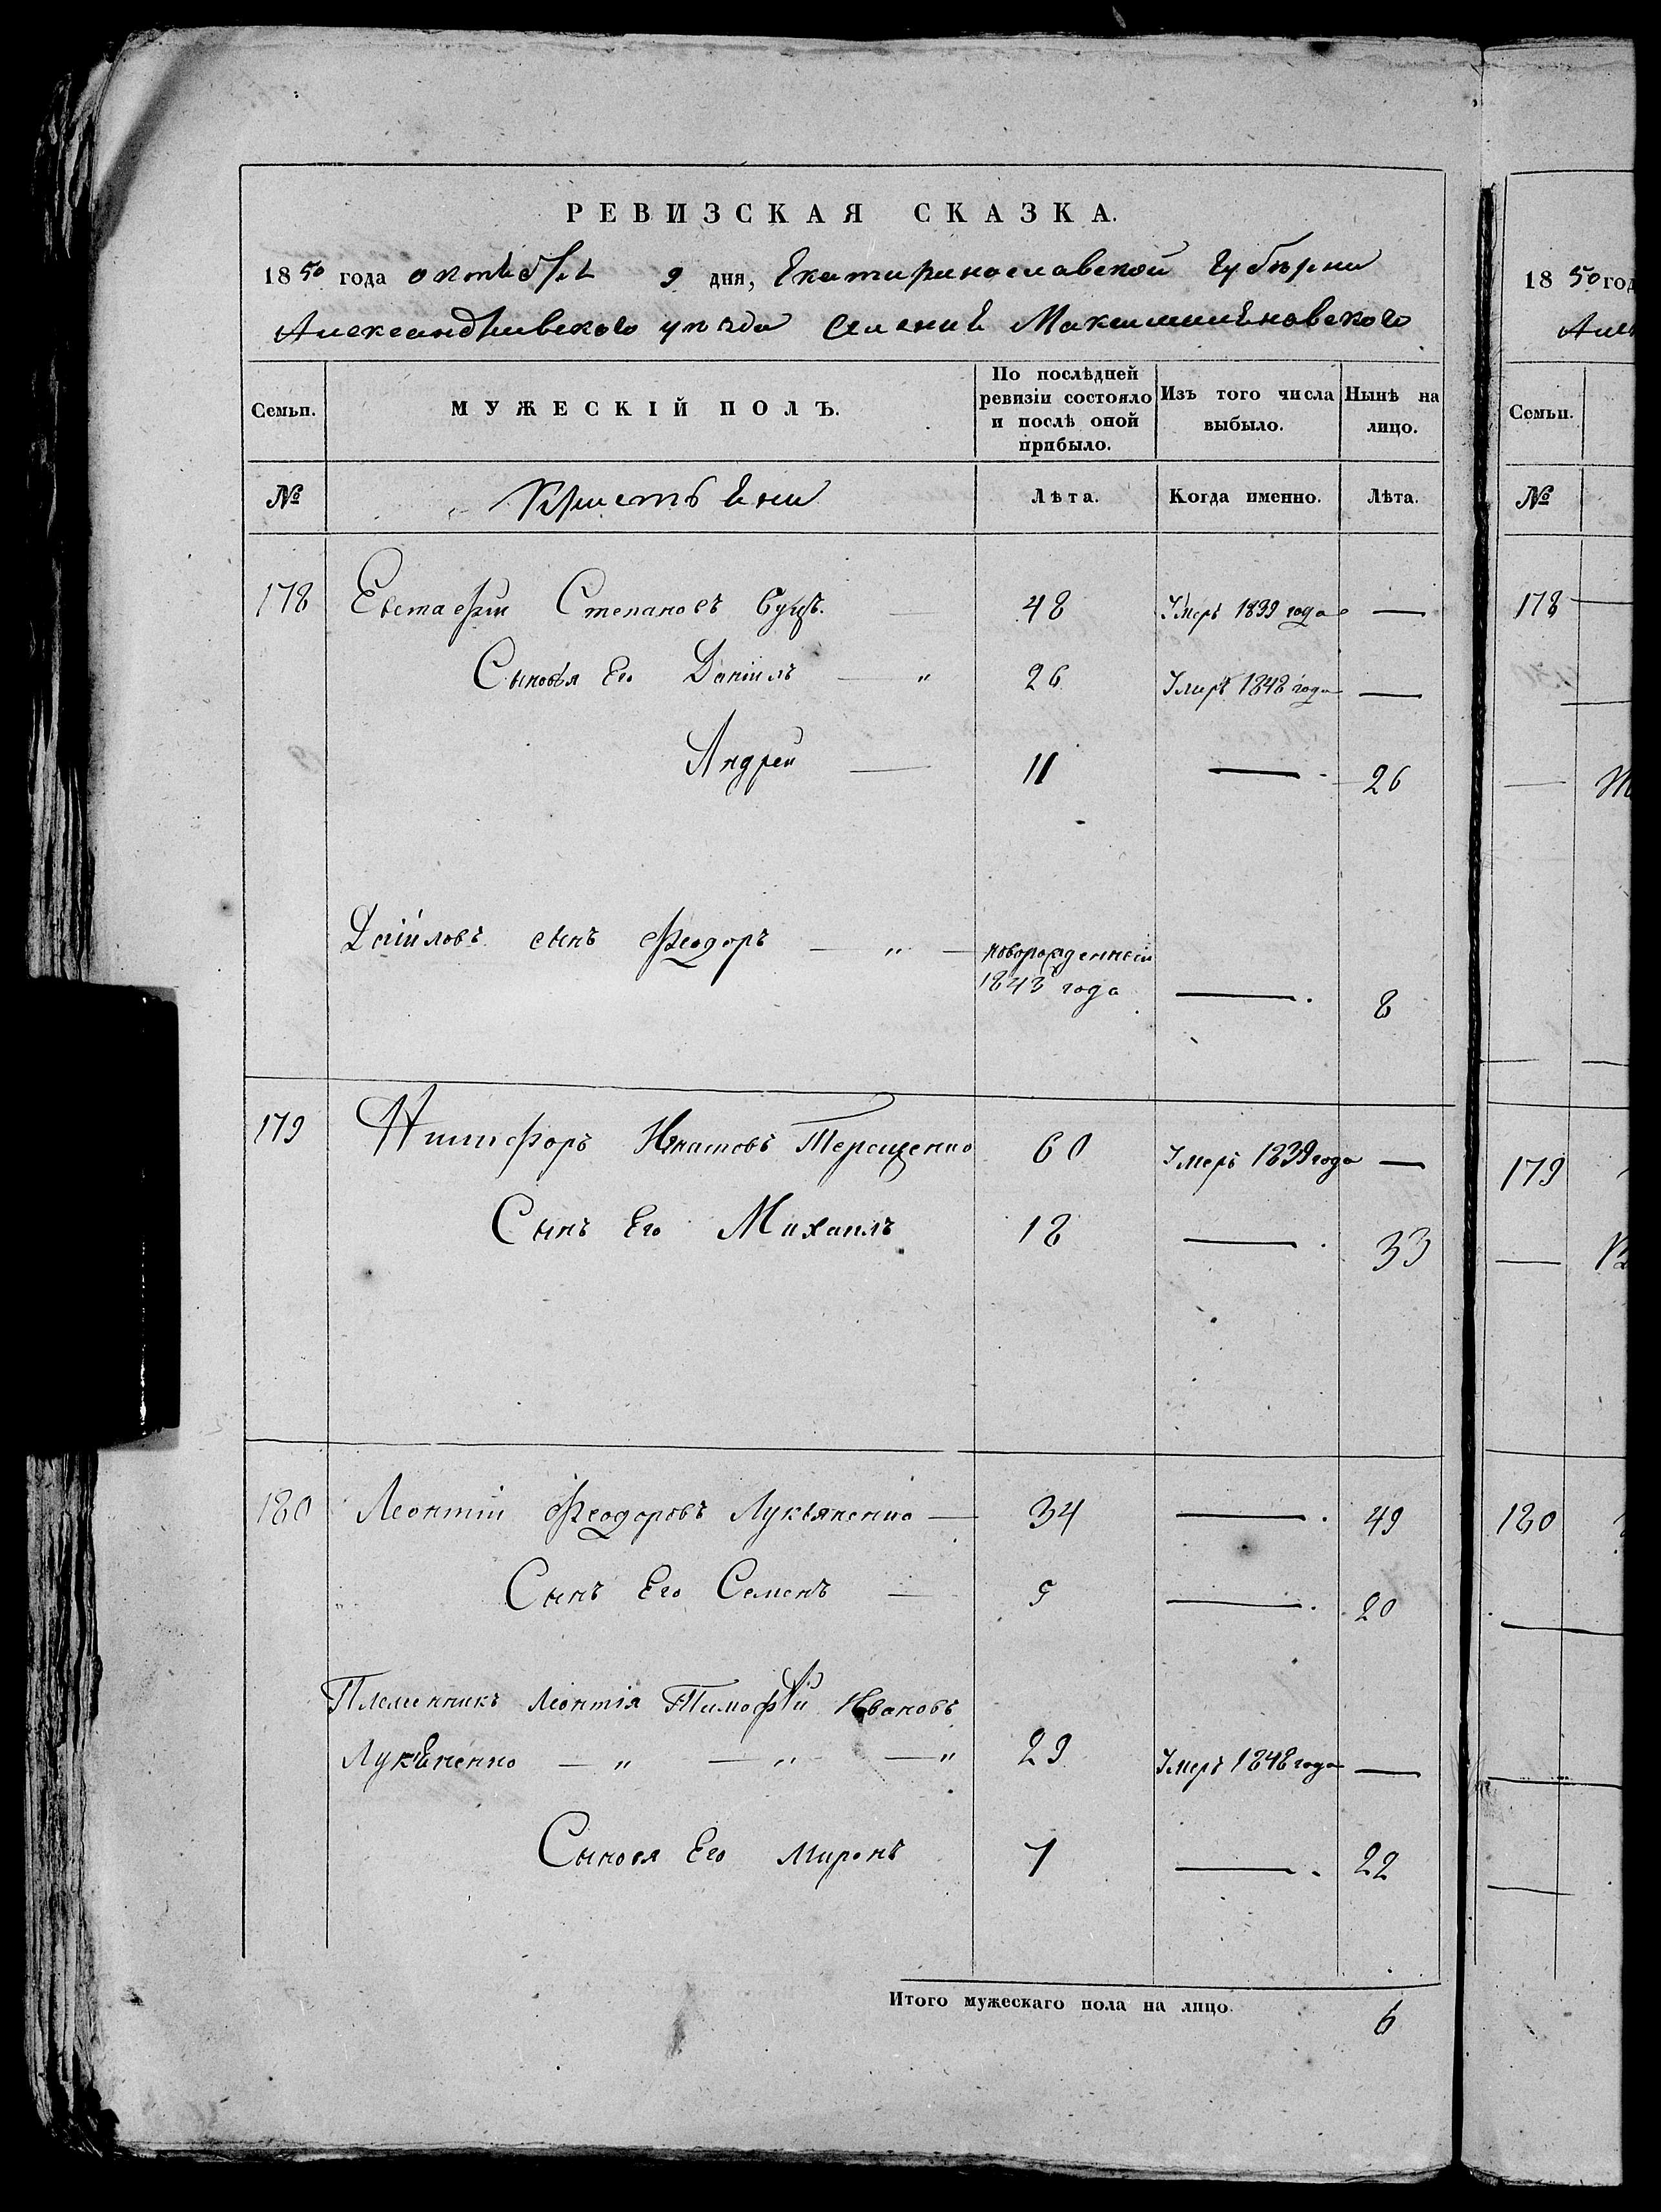 РЕВИЗСКАЯ СКАЗКА.
1850 года октября 9 дня, Екатеринославской Губернии
Александровского уезда селения Максимилиановского
Семьи. МУЖЕСКІЙ ПОЛЪ. По послѣдней ревизіи состояло и послѣ оной прибыло. Изъ того числа выбыло. Нынѣ на лицо.
№ Крестьяни Лѣта. Когда именно. Лѣта.
178 Евстафій Степановъ 48 Умеръ 1839 года —
Сыновья Его Даніилъ — " 26 Умеръ 1848 года —
Андрей — 11 — 26
Даніиловъ сынъ Феодоръ — " — новорожденный
1843 года — 8
179 Никифоръ Игнатовъ Терещенко 60 Умеръ 1839 года —
Сынъ Его Михаилъ 18 — 33
180 Леонтій Феодоровъ Лукьяненко — 34 — 49
Сынъ Его Семенъ — 5 — 20
Племянникъ Леонтія Тимофѣй Ивановъ
Лукяненко — " — " — " 29 Умеръ 1848 года —
Сыновя Его Миронъ 7 — 22
Итого мужескаго пола на лицо 6
1850 год
Семьи.
№
178
179
180